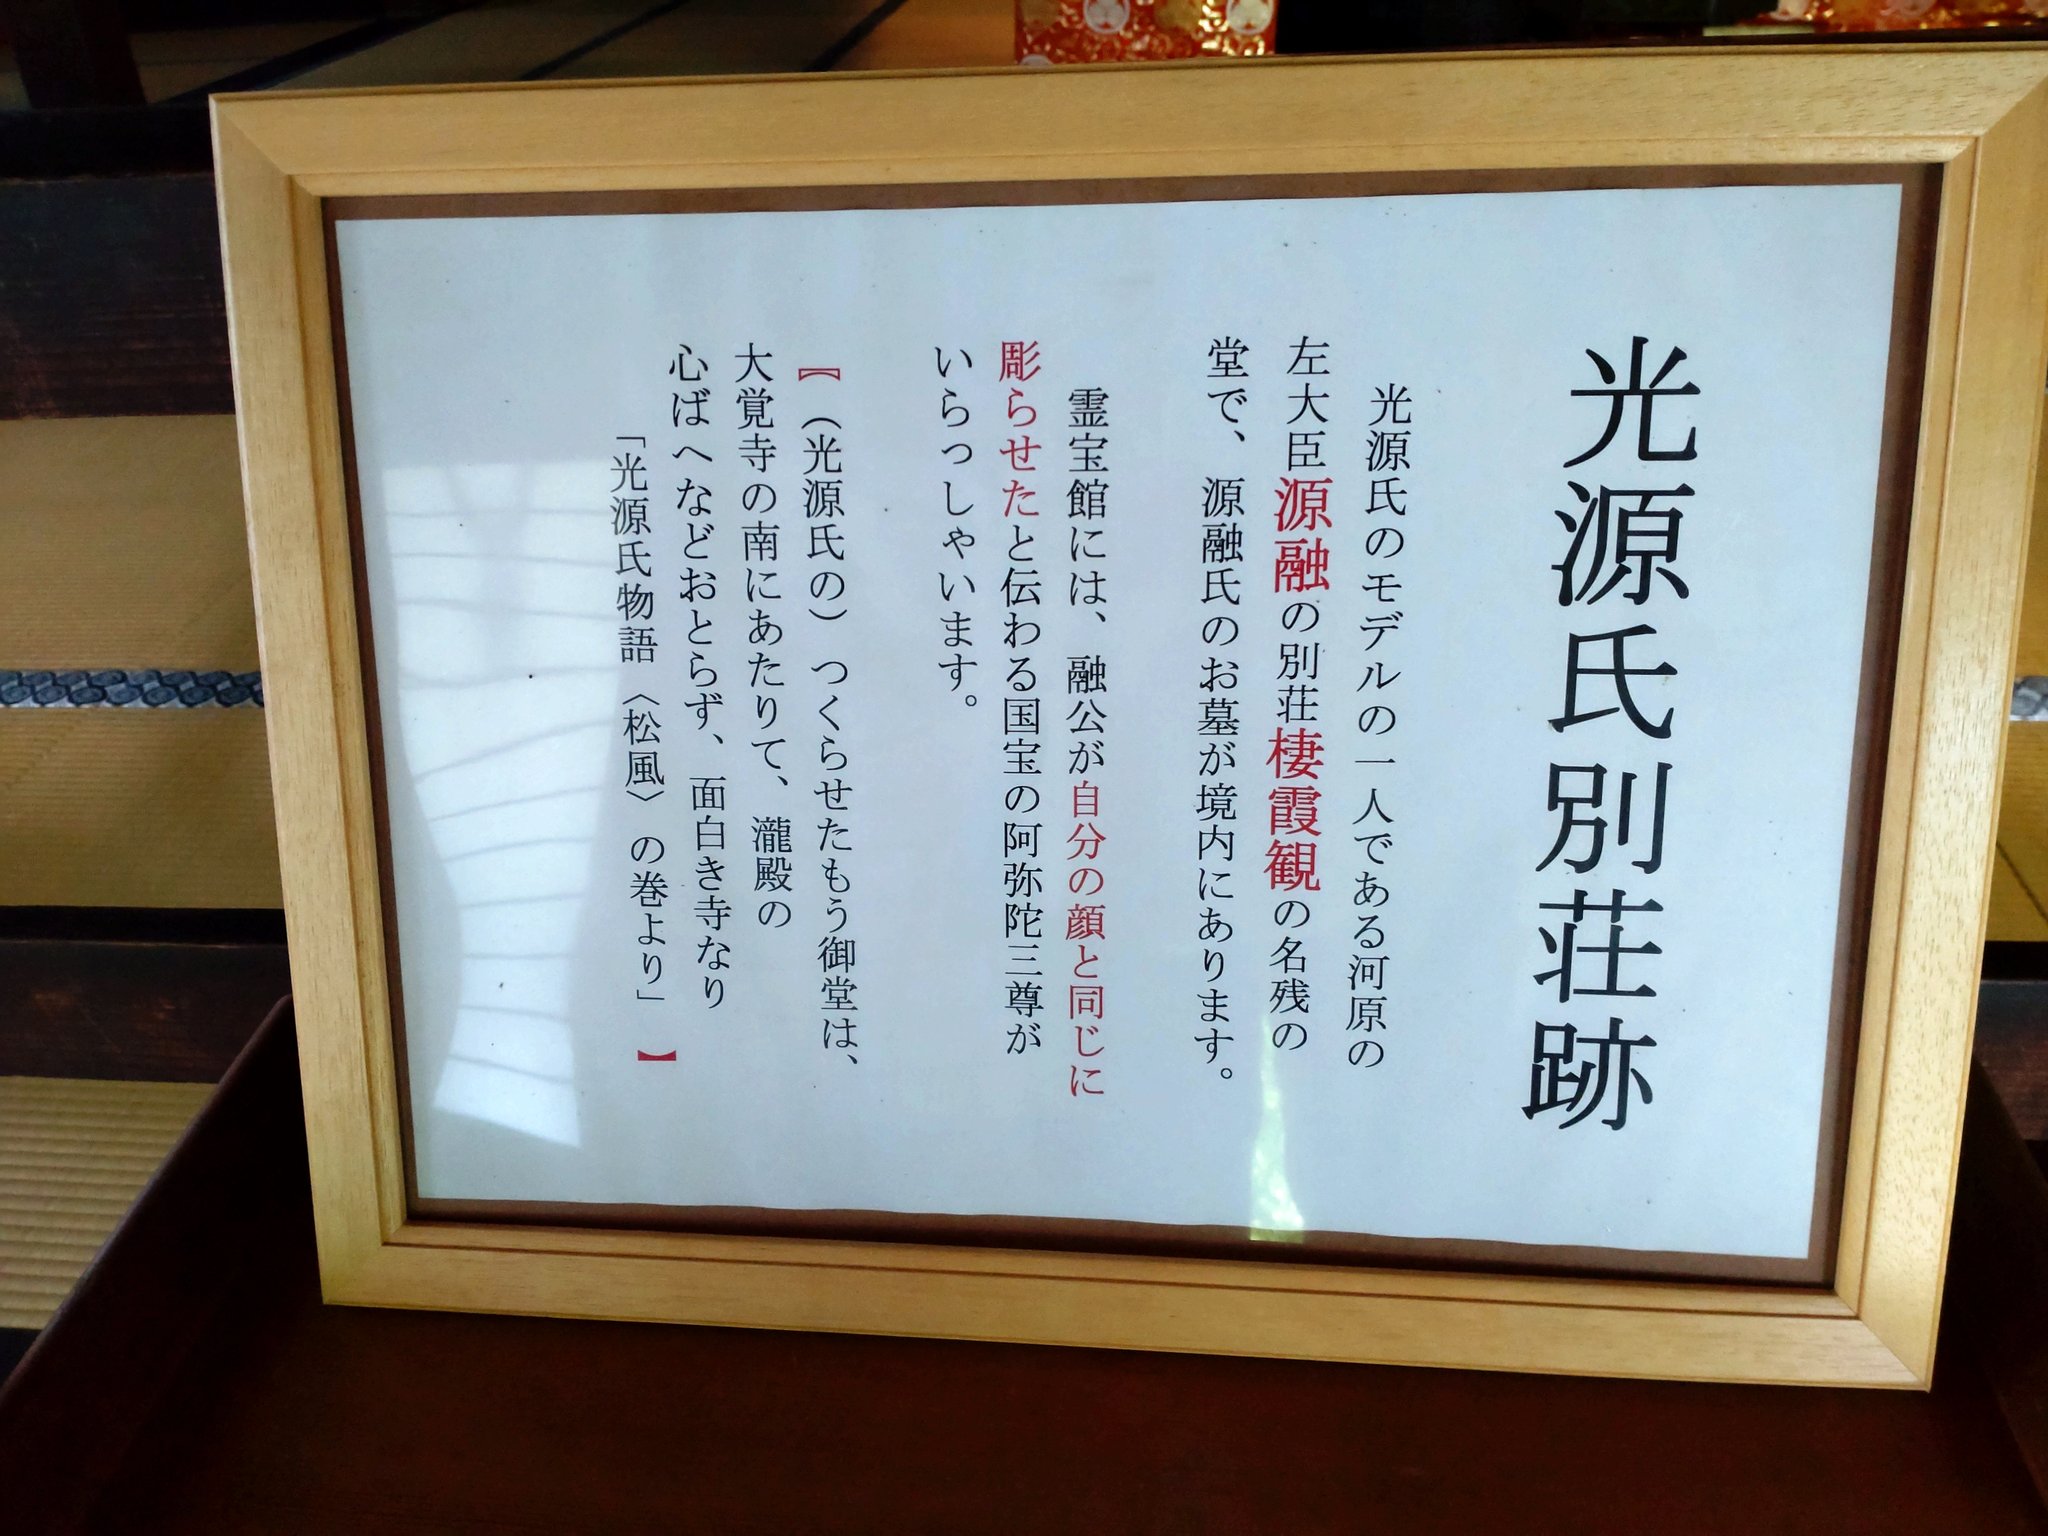 光源氏別荘跡
光源氏のモデルの一人である河原の
左大臣源融の別荘棲霞観の名残の
堂で、源融氏のお墓が境内にあります。
霊宝館には、融公が自分の顔と同じに
彫らせたと伝わる国宝の阿弥陀三尊が
いらっしゃいます。
【（光源氏の）つくらせたもう御堂は、
大覚寺の南にあたりて、瀧殿の
心ばへなどおとらず、面白き寺なり
「光源氏物語〈松風〉の巻より」】